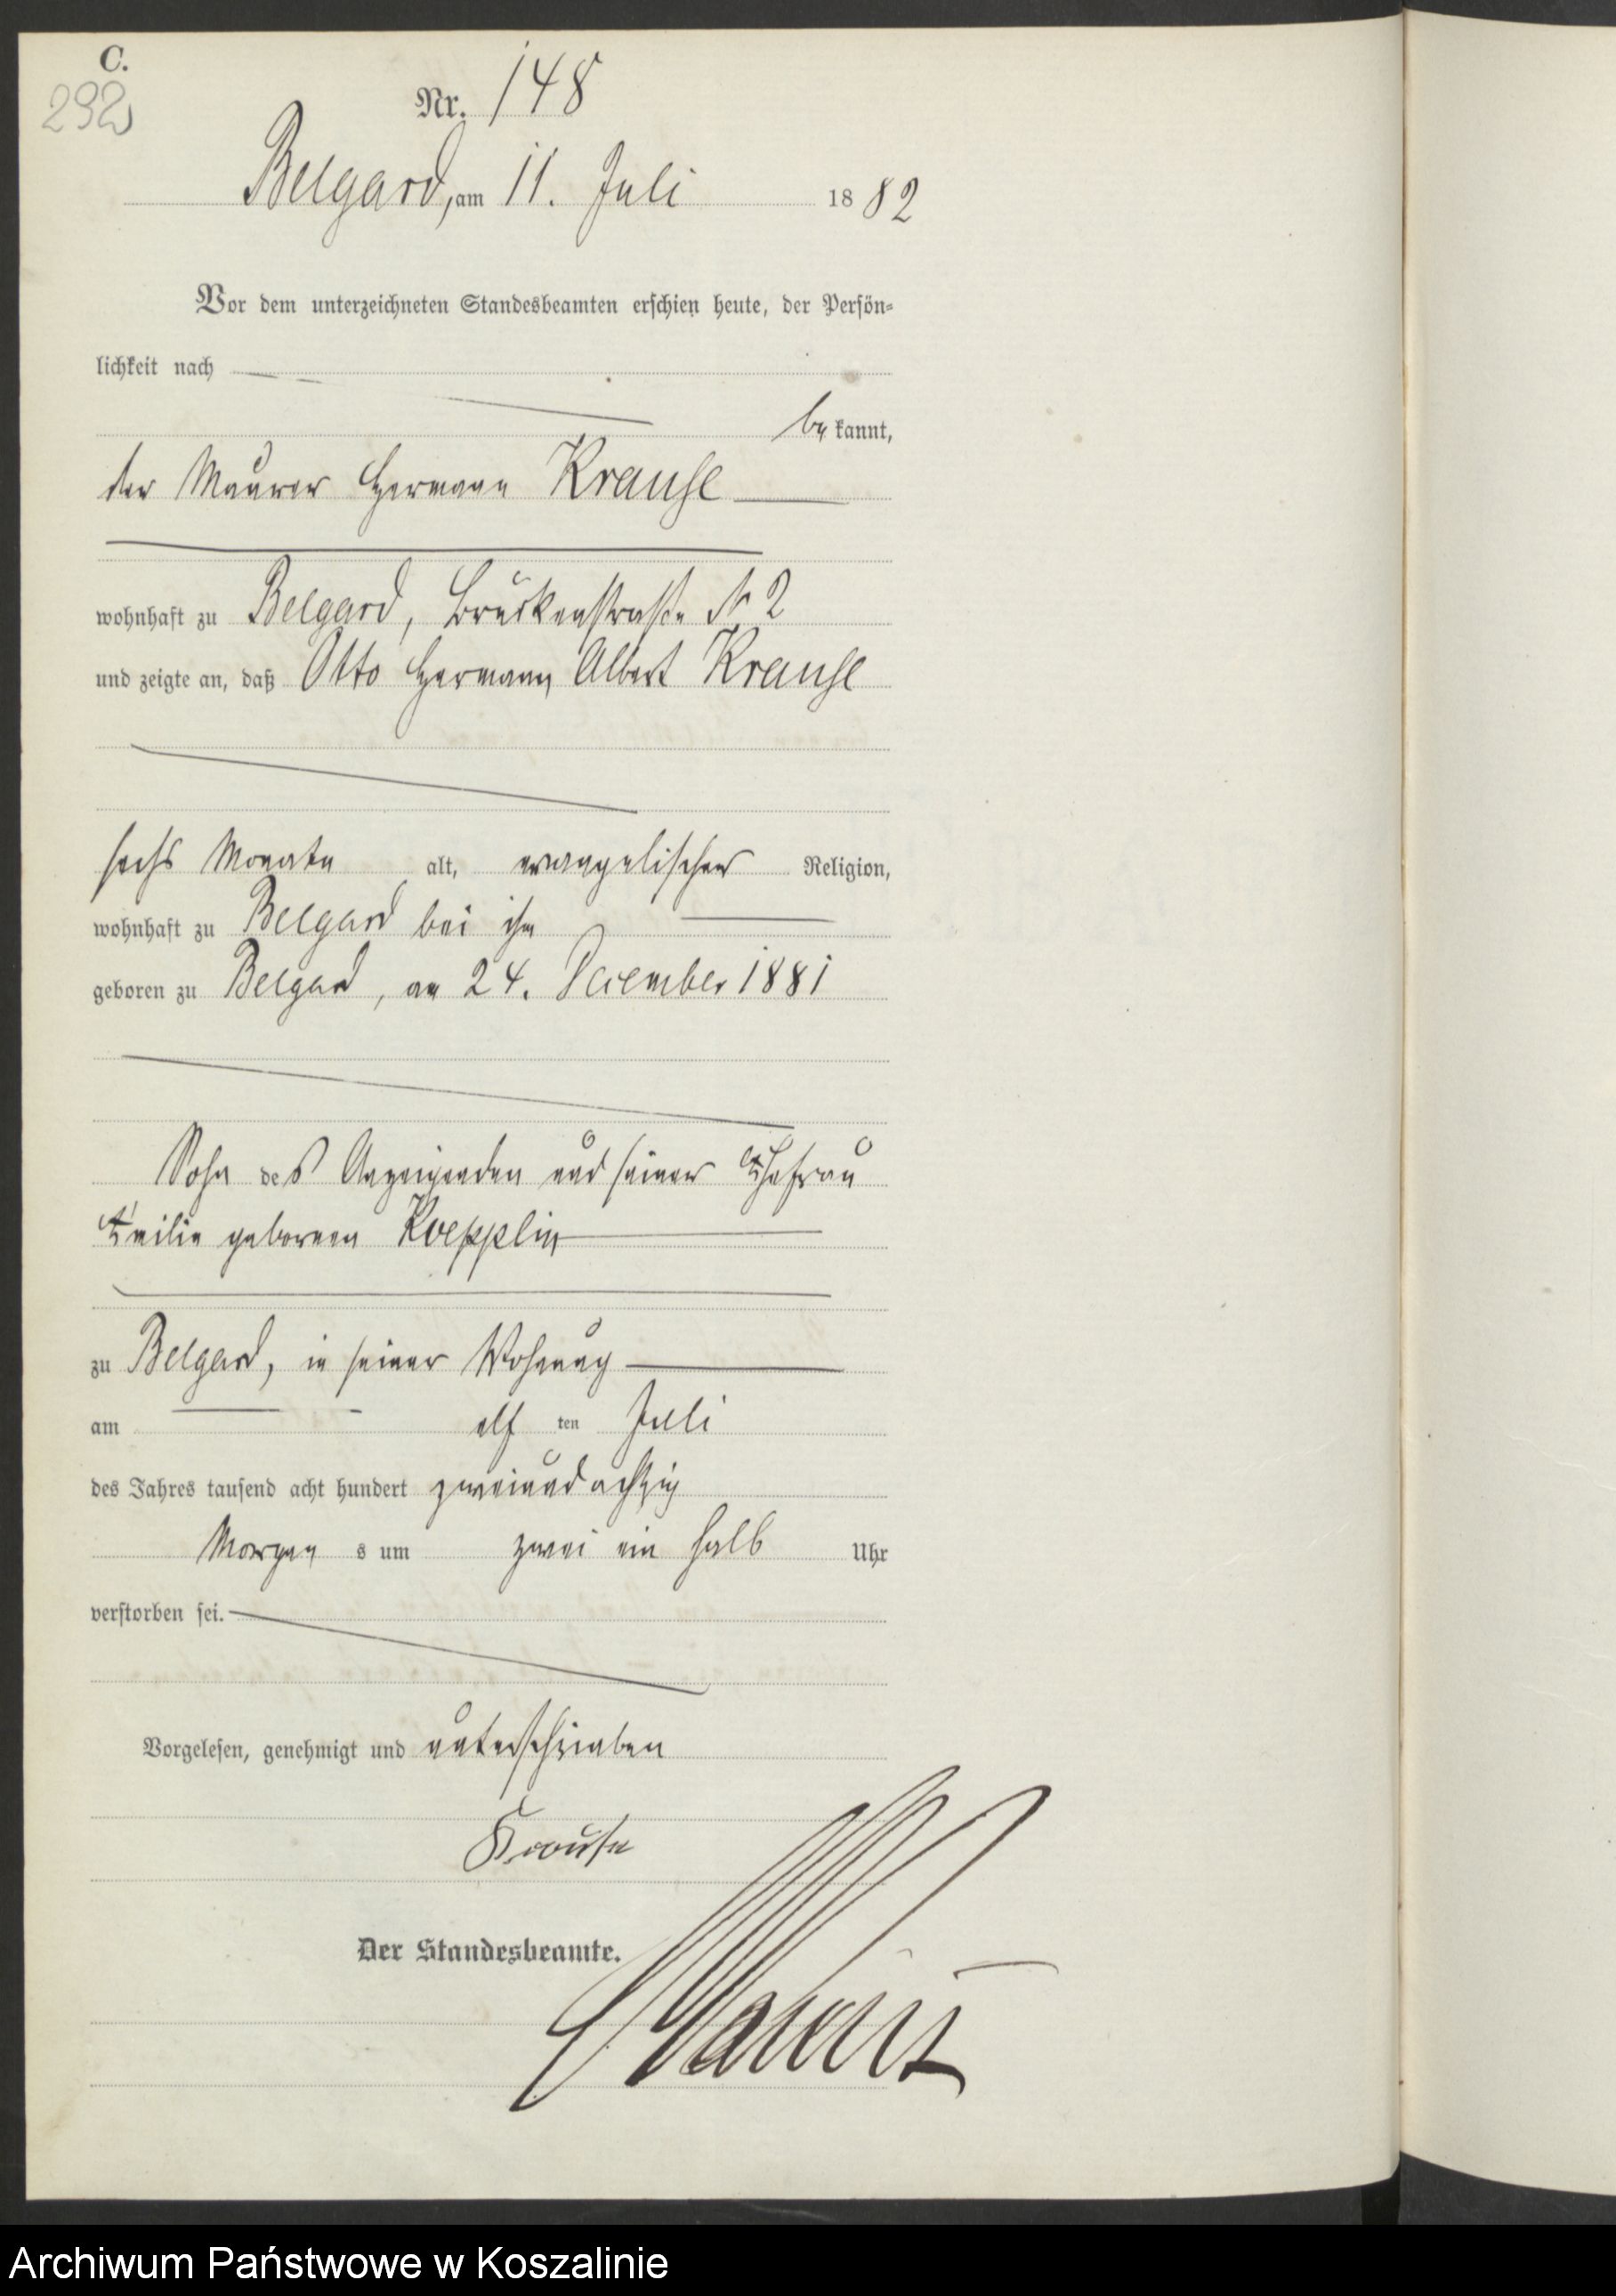 C.
292
Nr. 148
Belgard, am 11. Juli 1882
Vor dem unterzeichneten Standesbeamten erschien heute, der Persön-
lichkeit nach
bekannt,
der Maurer Hermann Krause
wohnhaft zu Belgard, Brückenstraße № 2
und zeigte an, daß Otto Hermann Albert Krause
sechs Monate alt, evangelischer Religion,
wohnhaft zu Belgard bei ihm
geboren zu Belgard, am 24. December 1881
Sohn des Anzeigenden und seiner Ehefrau
geborenen Koepplin
zu Belgard, in seiner Wohnung
am elf ten Juli
des Jahres tausend acht hundert zweiundachtzig
Morgens um zwei ein halb Uhr
verstorben sei.
Vorgelesen, genehmigt und unterschrieben
Krause
Der Standesbeamte.
Archiwum Państwowe w Koszalinie